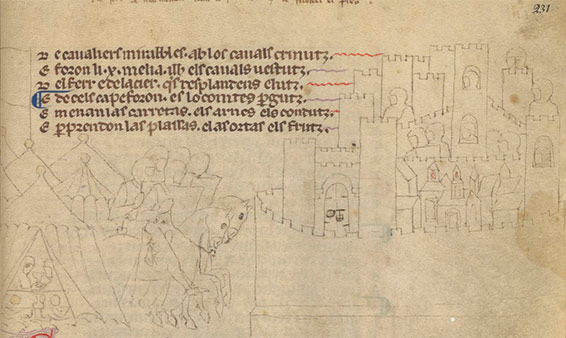 231
D e cavaliers mirables. ab los cavals crinutz.
E foron li .x. melia. ilh els cavals vestutz.
D el ferr e delacier. q̃s resplandens elutz.
E de cels cape foron. es lo comtes p̃gutz.
E menan las carretas. els arnes els condutz.
E p̃prendon las plassas. elas ortas els frutz.